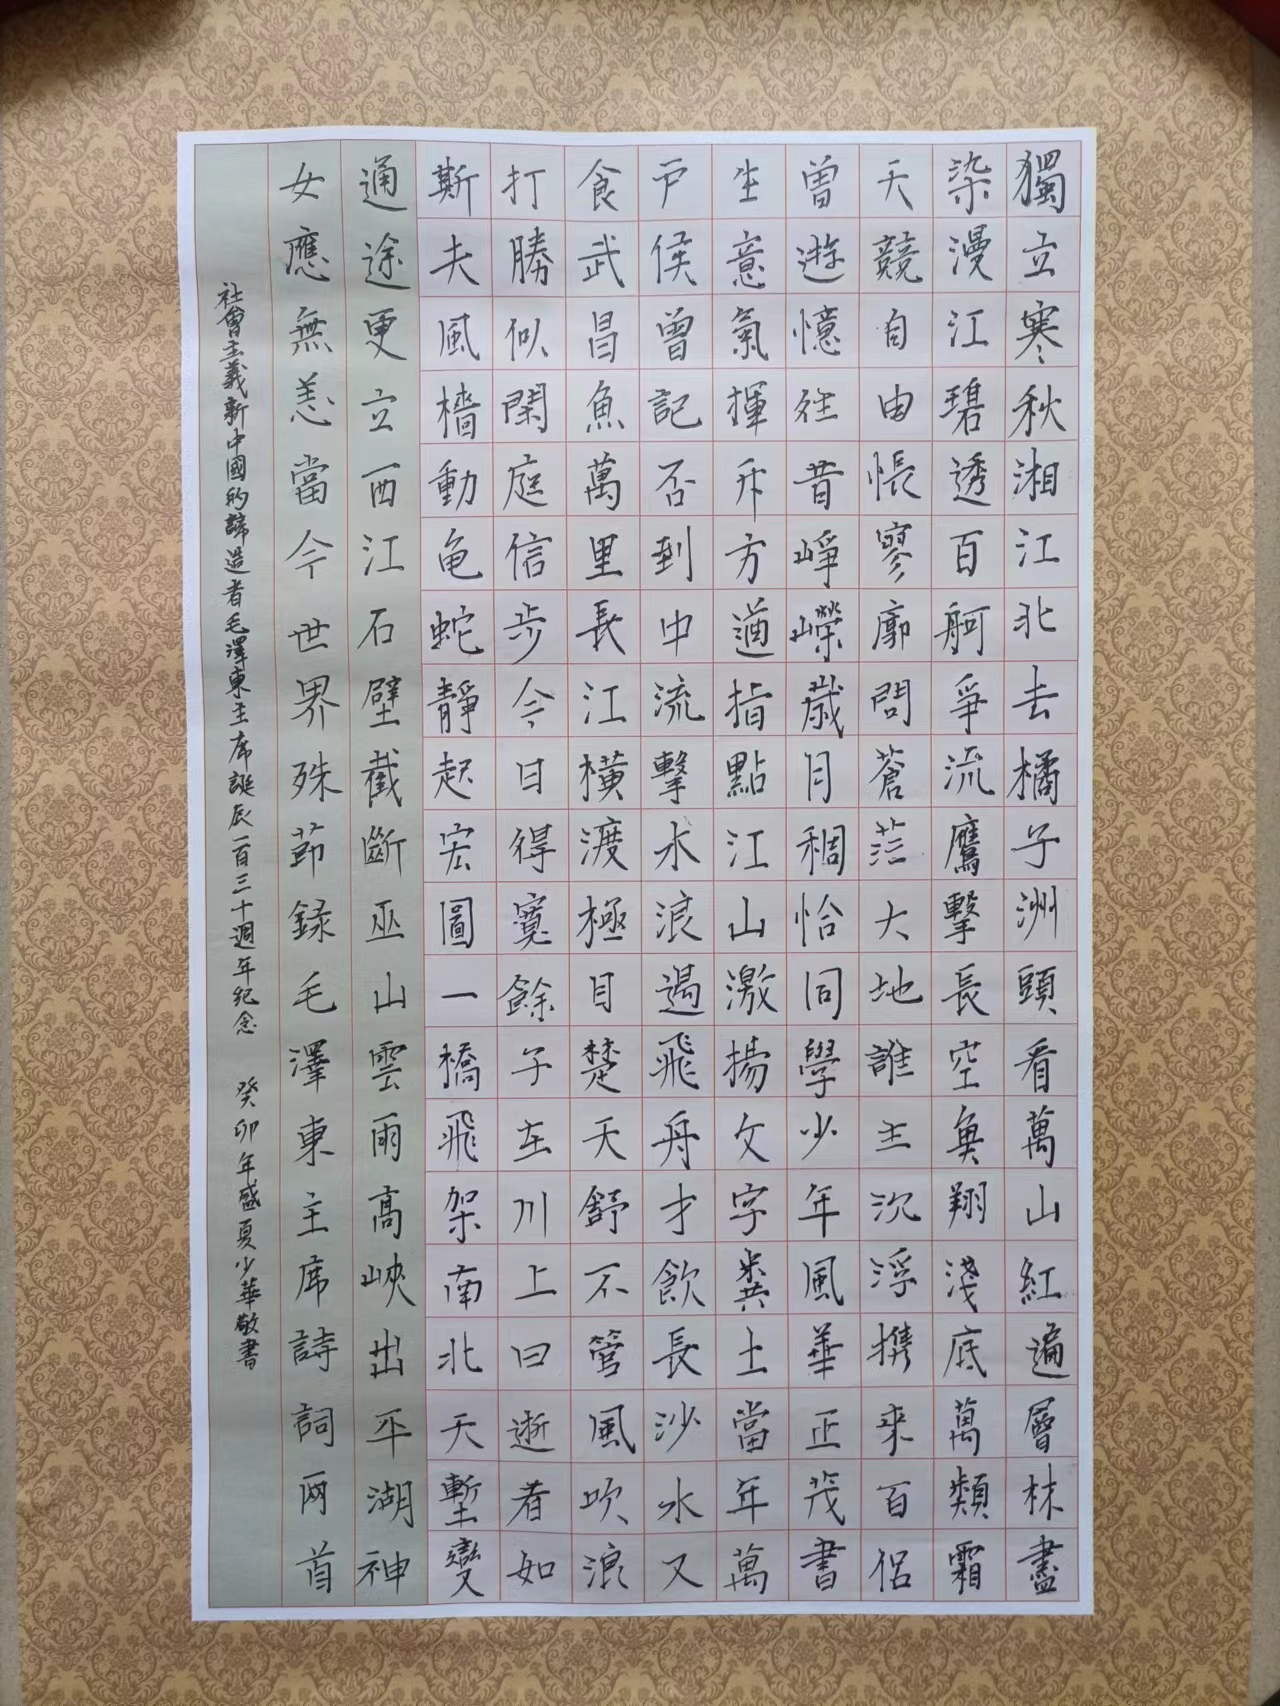 獨立寒秋湘江北去橘子洲頭看萬山紅遍層林盡
染漫江碧透百舸爭流鷹擊長空魚翔淺底萬類霜
天競自由悵寥廓問蒼茫大地誰主沉浮攜來百侶
曾遊憶往昔崢嶸歲月稠恰同學少年風華正茂書
生意氣揮斥方遒指點江山激揚文字糞土當年萬
户侯曾記否到中流擊水浪遏飛舟才飲長沙水又
食武昌魚萬里長江橫渡極目楚天舒不管風吹浪
打勝似閑庭信步今日得寬餘子在川上曰逝者如
斯夫風檣動龟蛇靜起宏圖一橋飛架南北天塹變
通途更立西江石壁截斷巫山雲雨高峽出平湖神
女應無恙當今世界殊節錄毛澤東主席詩詞两首
社會主義新中國的諦造者毛澤東主席誕辰一百三十週年紀念 癸卯年盛夏少華敬書